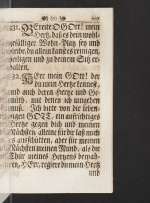 31. BEreite O GOtt! mein
Hertz, daß es dein wohl-
gefälliger Wohn-Platz sey und
bleibe, du allein kanst es reinigen,
heiligen und zu deinem Sitz er-
halten.
32. HErr mein GOtt! der
du mein Hertze kennest,
und auch deren Hertze und Ge-
müth, mit denen ich umgehen
muß. Ich bitte von dir leben-
digen GOTT, ein aufrichtiges
Hertze gegen dich und meinen
Nächsten, alleine für dir laß mich
es ausschütten, aber für meinem
Nächsten meinen Mund, als die
Thür meines Hertzens bewah-
ren, HErr, regiere du mein Hertz
und